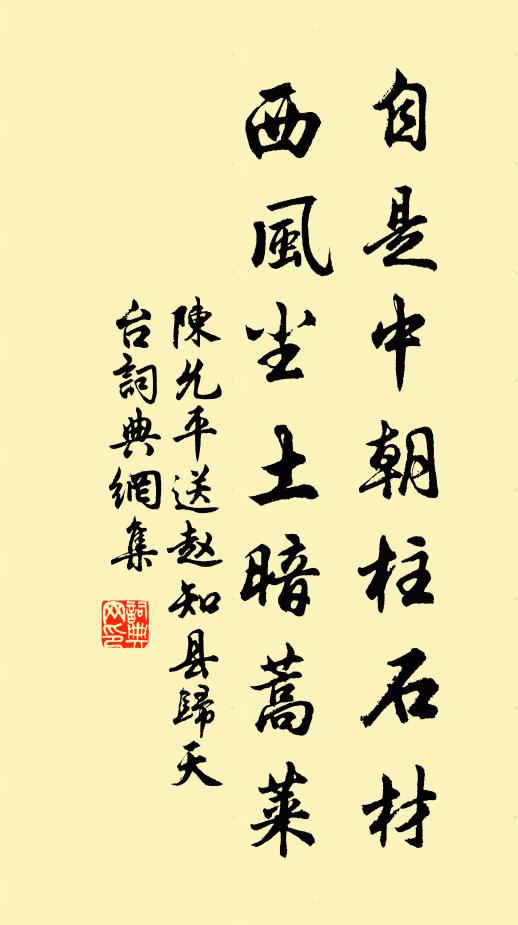 自是中朝柱石材
西風尘土暗蒿莱
陳允平送赵知县歸天
台詞典網集
詞典
网印